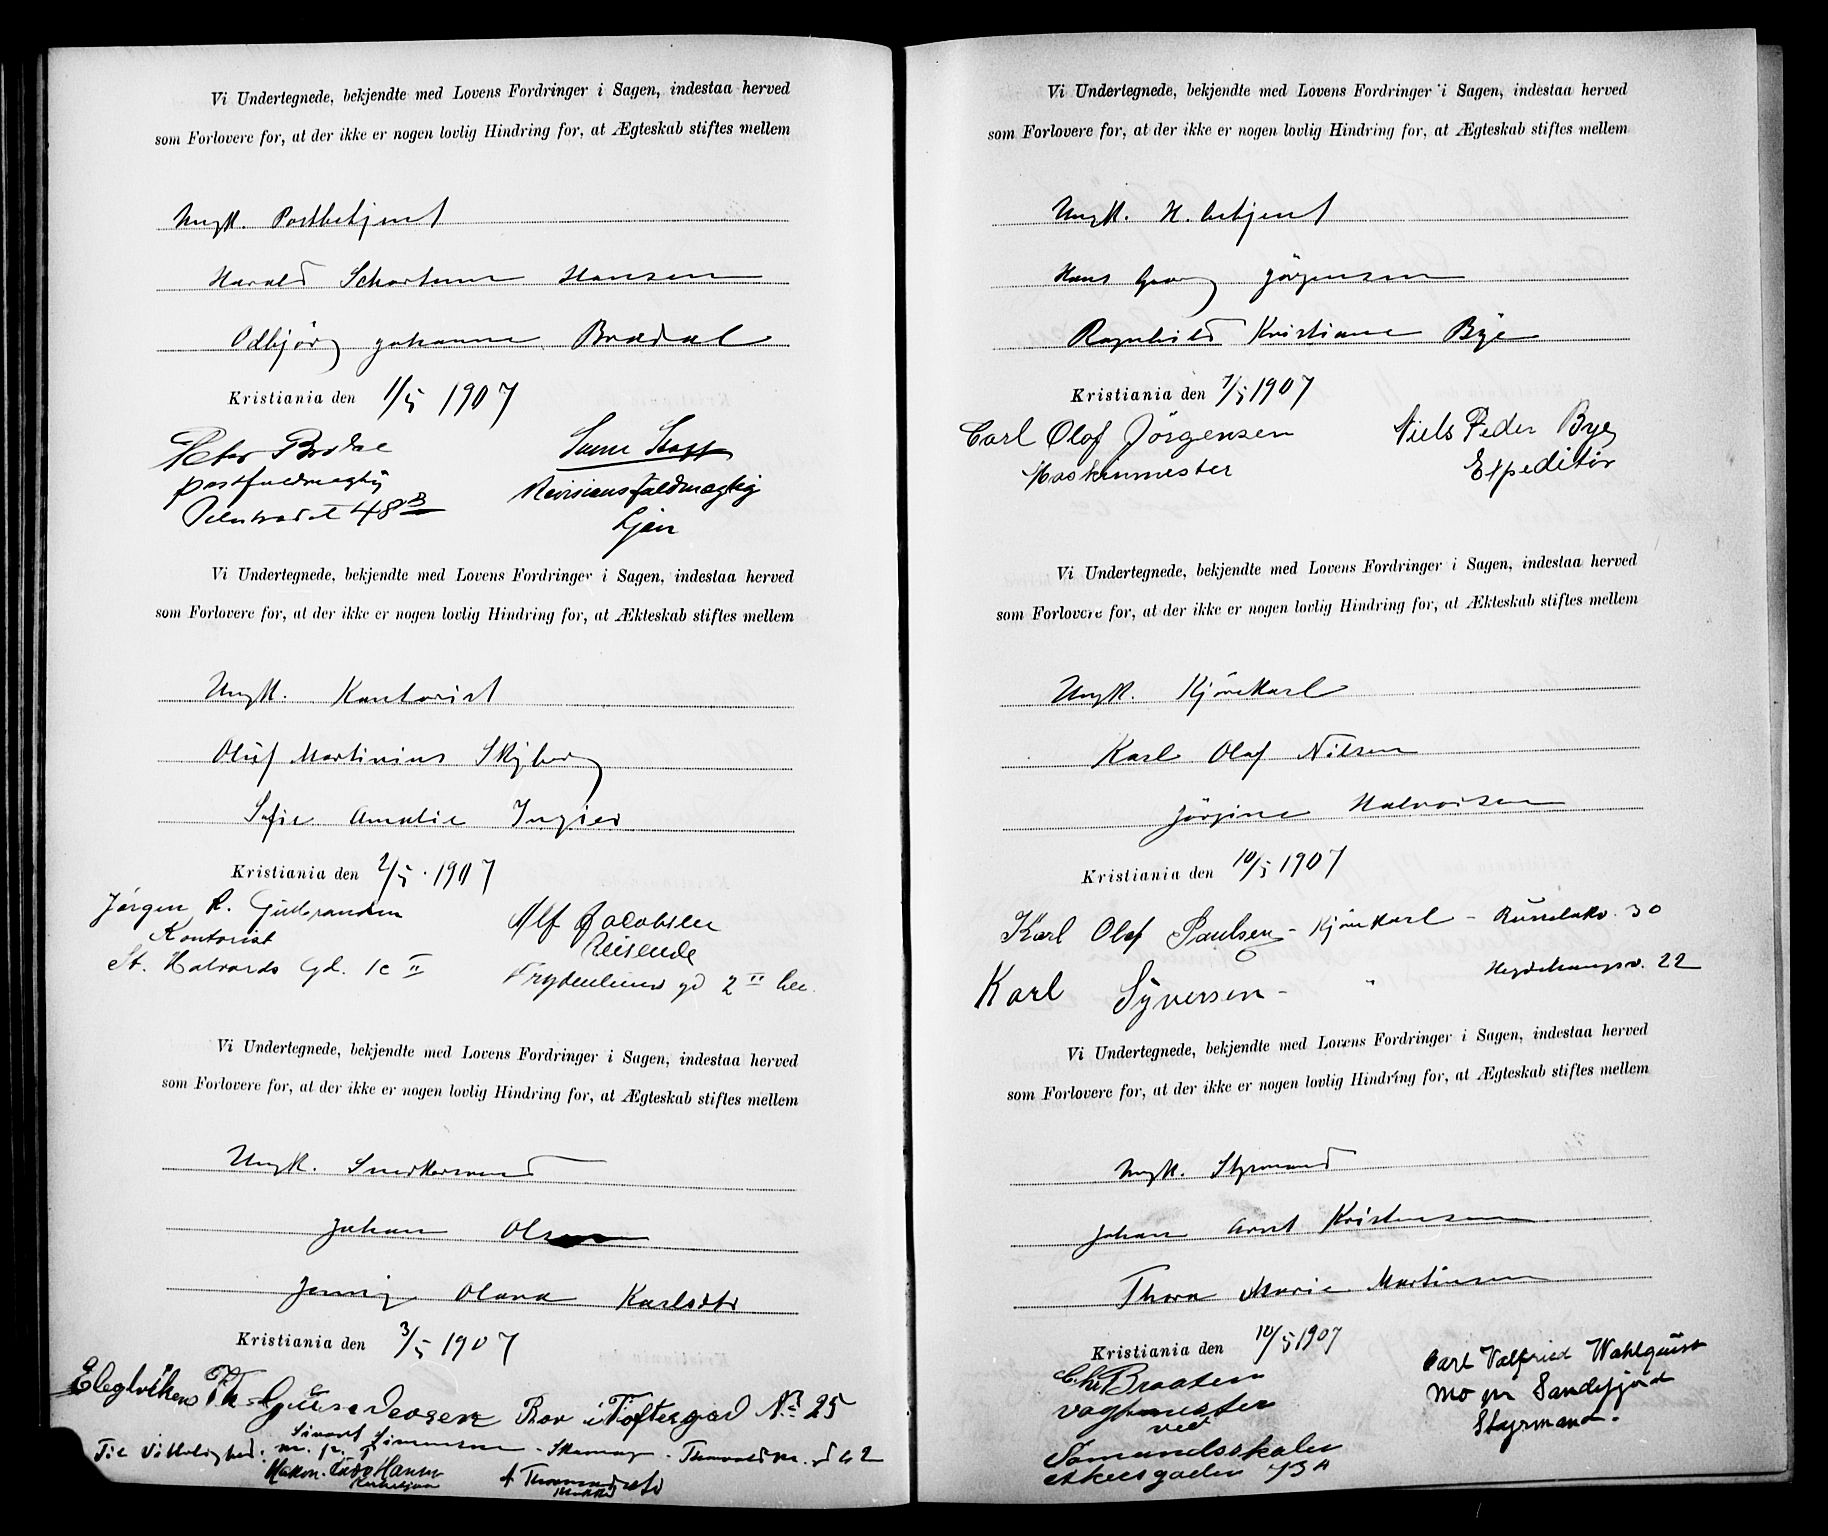 Vi Undertegnede, bekjendte med Lovens Fordringer i Sagen, indestaa herved
som Forlovere for, at der ikke er nogen lovlig Hindring for, at Ægteskab stiftes mellem
Ungk. Postbetjent
Harald Hansen
Odbjörg Johanne Brodal
Kristiania den 1/5 1907
Peter
postfuldmægtig
48 B
Revisionsfuldmægtig
Ljan
Vi Undertegnede, bekjendte med Lovens Fordringer i Sagen, indestaa herved
som Forlovere for, at der ikke er nogen lovlig Hindring for, at Ækteskab stiftes mellem
Ungk. Kontorist
Oluf Martinius Skjberg
Sofie Amalie Ingier
Kristiania den 2/5. 1907
Jörgen R. Gulbrandsen
Kontorist
St. Halvards Gd. 1c II
Alf Jacobsen
Reisende
gd 2 II
Vi Undertegnede, bekjendte med Lovens Fordringer i Sagen, indestaa herved
som Forlovere for, at der ikke er nogen lovlig Hindring for, at Ægteskab stiftes mellem
Ungk. Snedkersvend
Johan Olsen
Jenny Olava Karlsdtr
Kristiania den 3/5 1907
Th. Gundersen Bor i Toftergad No 25
Til Vitterlighed:
Sivert Simensen - Skomag. - 62
Hansen
Vi Undertegnede, bekjendte med Lovens Fordringer i Sagen, indestaa herved
som Forlovere for, at der ikke er nogen lovlig Hindring for, at Ægteskab stiftes mellem
Ungk. H. betjent
Hans Georg Jörgensen
Ragnhild Kristiane Bye
Kristiania den 7/5 1907
Carl Olaf Jörgensen
Maskinmester
Niels Peder Bye
Expeditör
Vi Undertegnede, bekjendte med Lovens Fordringer i Sagen, indestaa herved
som Forlovere for, at der ikke er nogen lovlig Hindring for, at Ækteskab stiftes mellem
Ungk. Kjörekarl
Karl Olaf Nilsen
Jörgine Halvorsen
Kristiania den 10/5 1907
Karl Olaf Paulsen - Kjörekarl - Russelökv. 30
Karl Syversen - " Hegdehaugsv. 22
Vi Undertegnede, bekjendte med Lovens Fordringer i Sagen, indestaa herved
som Forlovere for, at der ikke er nogen lovlig Hindring for, at Ægteskab stiftes mellem
Ungk. Styrmand
Johan Arnt Kristensen
Thora Marie Martinsen
Kristiania den 10/5 1907
Chr Braaten
vagtmester
ved
Sömandsskolen
Akersgaden 73 A
Carl Valfried Wahlquist
Mo pr Sandefjord
Styrmand.